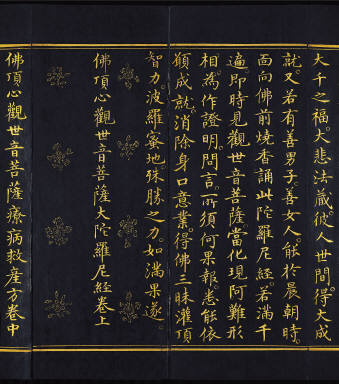 大千之福。大悲法藏。彼人世間。得大成
就。又若有善男子。善女人。能於晨朝時。
面向佛前燒香。誦此陀羅尼經。若滿千
遍。即時見觀世音菩薩。當化現阿難形
相。為作證明。問言。所須何果報。悉能依
願成就。消除身口意業。得佛三昧灌頂
智力。波羅蜜地殊勝之力。如滿果遂。
佛頂心觀世音菩薩大陀羅尼經卷上
佛頂心觀世音菩薩療病救產方卷中